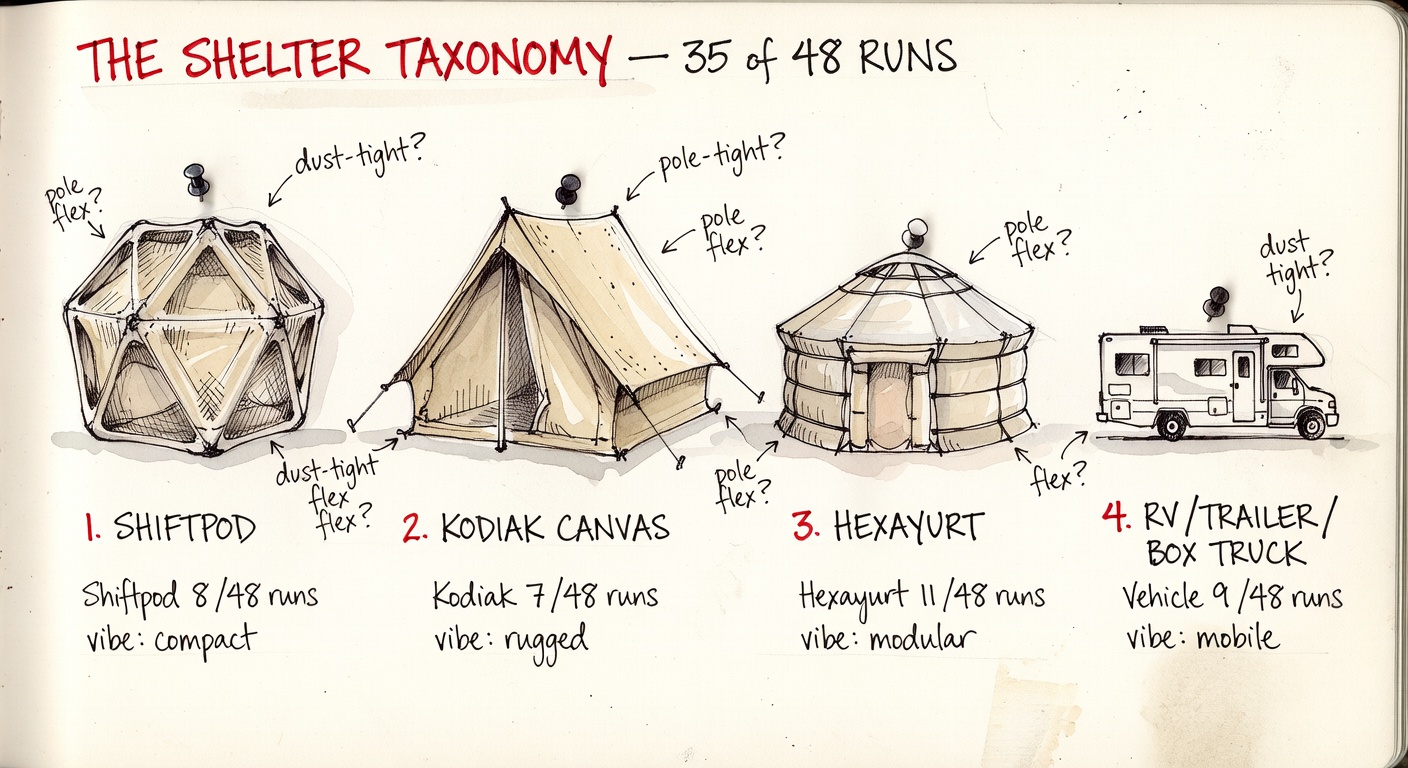 THE SHELTER TAXONOMY — 35 of 48 RUNS
pole
flex?
dust-tight?
pole-tight?
pole
flex?
pole
flex?
dust
tight?
dust-tight
flex
flex?
pole
flex?
flex?
1. SHIFTPOD
Shiftpod 8/48 runs
vibe: compact
2. KODIAK CANVAS
Kodiak 7/48 runs
vibe: rugged
3. HEXAYURT
Hexayurt 11/48 runs
vibe: modular
4. RV/TRAILER/
BOX TRUCK
Vehicle 9/48 runs
vibe: mobile